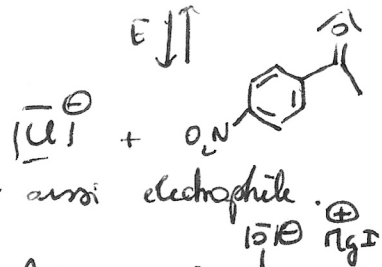 E
|Cl|⊖ + O₂N O
aussi électrophile.
|O|⊖ ⊕MgI